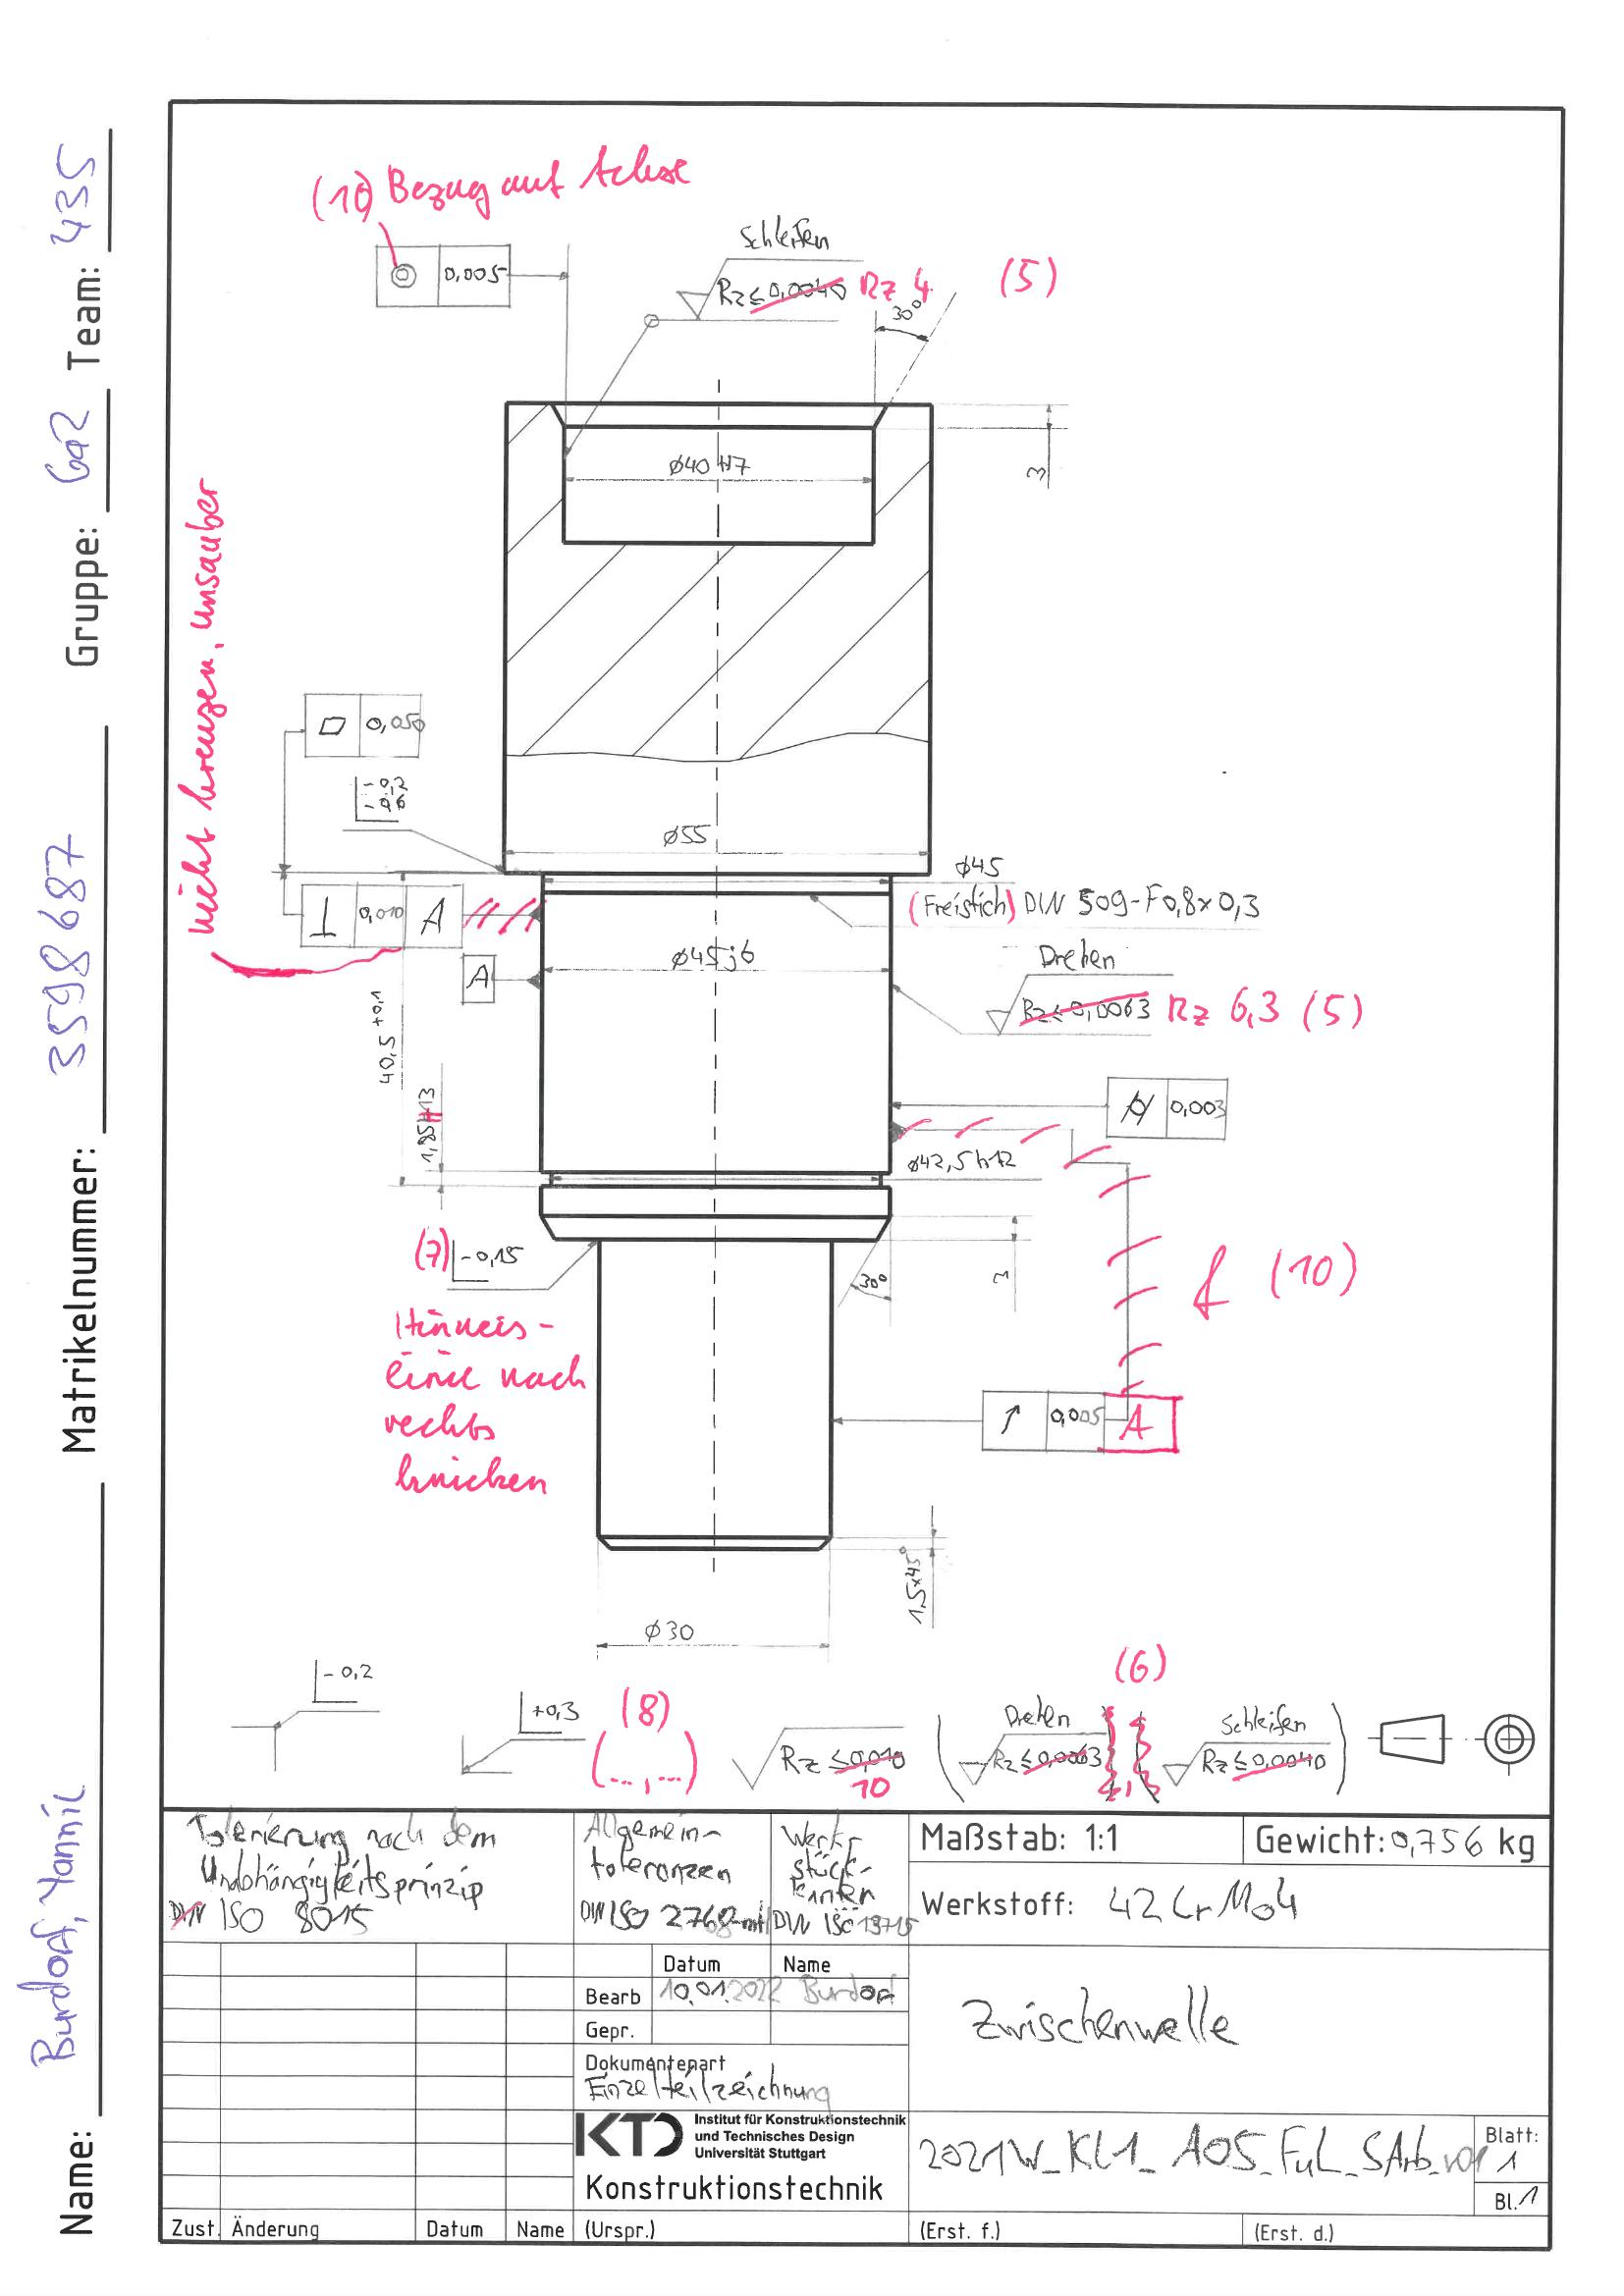 Name: Burdorf, Yannic Matrikelnummer: 3598687 Gruppe: 6a2 Team: 435
(10) Bezug auf Achse
0,005
Schleifen
Rz ≤ 0,0040 Rz 4
(5)
30°
3
Ø40 H7
nicht kreuzen, unsauber
0,050
-0,2
-0,6
Ø55
Ø45
(Freistich) DIN 509-F0,8x0,3
⊥ 0,010 A
A
Ø45 j6
Drehen
Rz ≤ 0,0063 Rz 6,3 (5)
40,5 +0,1
1,85 H13
0,003
Ø42,5 h12
(7) -0,15
30°
3
f (10)
Hinweis-
linie nach
rechts
knicken
0,005 A
1,5x45°
Ø30
(6)
-0,2
+0,3
(8)
(...,...)
Rz ≤ 0,010
10
Drehen
Rz ≤ 0,0063
,
Schleifen
Rz ≤ 0,0040
Tolerierung nach dem
Unabhängigkeitsprinzip
DIN ISO 8015
Allgemein-
toleranzen
DIN ISO 2768-mH
Werk-
stück-
kanten
DIN ISO 13715
Maßstab: 1:1
Gewicht: 0,756 kg
Werkstoff: 42CrMo4
Datum Name
Bearb 10.01.2022 Burdorf
Gepr.
Zwischenwelle
Dokumentenart
Einzelteilzeichnung
KTD
Institut für Konstruktionstechnik
und Technisches Design
Universität Stuttgart
Konstruktionstechnik
2021W_KL1_A05_FuL_SArb_v01
Blatt:
1
Bl. 1
Zust. Änderung Datum Name (Urspr.) (Erst. f.) (Erst. d.)